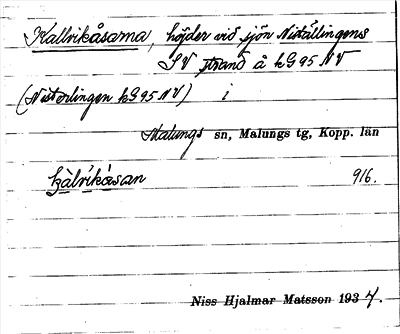 Kallvikåsarna, höjder vid sjön Niställingens
SV strand å kG95NV
(Nisterlingen kG95NV) i
Malungs sn, Malungs tg, Kopp. län
kàlvikåsan 916.
Niss Hjalmar Matsson 1934.